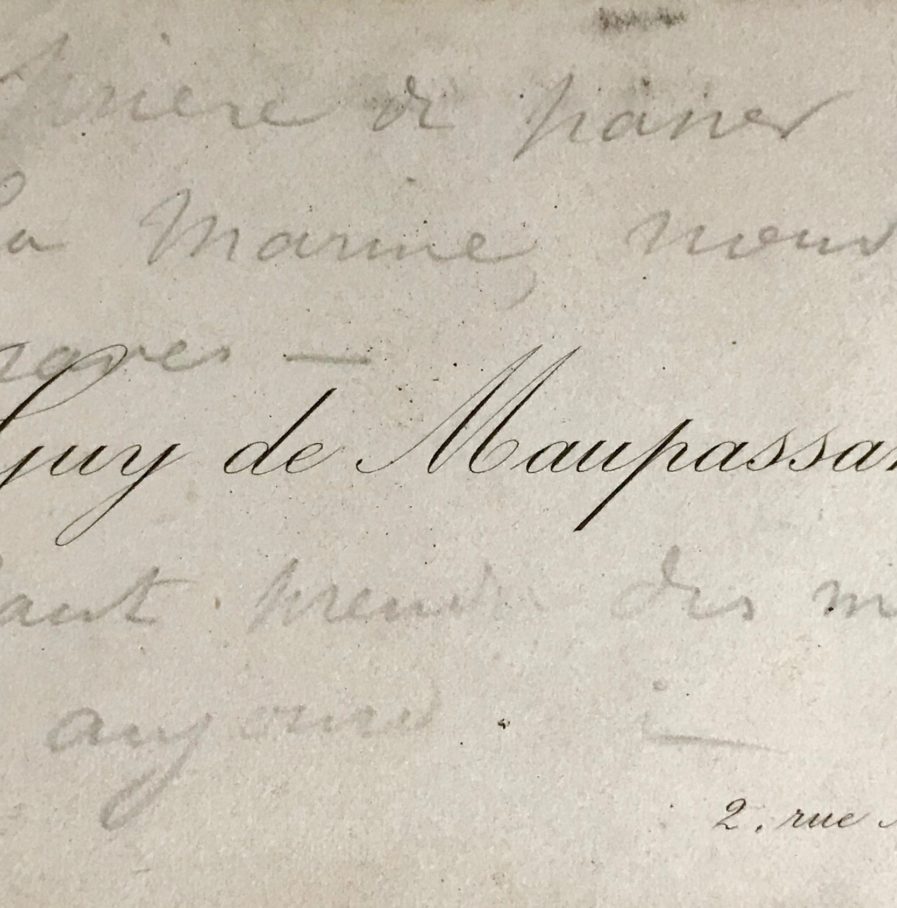 Prière de passer
la Marine, nous
graves —
Guy de Maupassan
faut prendre des m
aujourd
2, rue